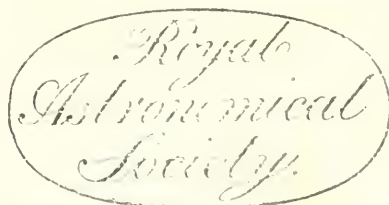 Royal
Astronomical
Society.